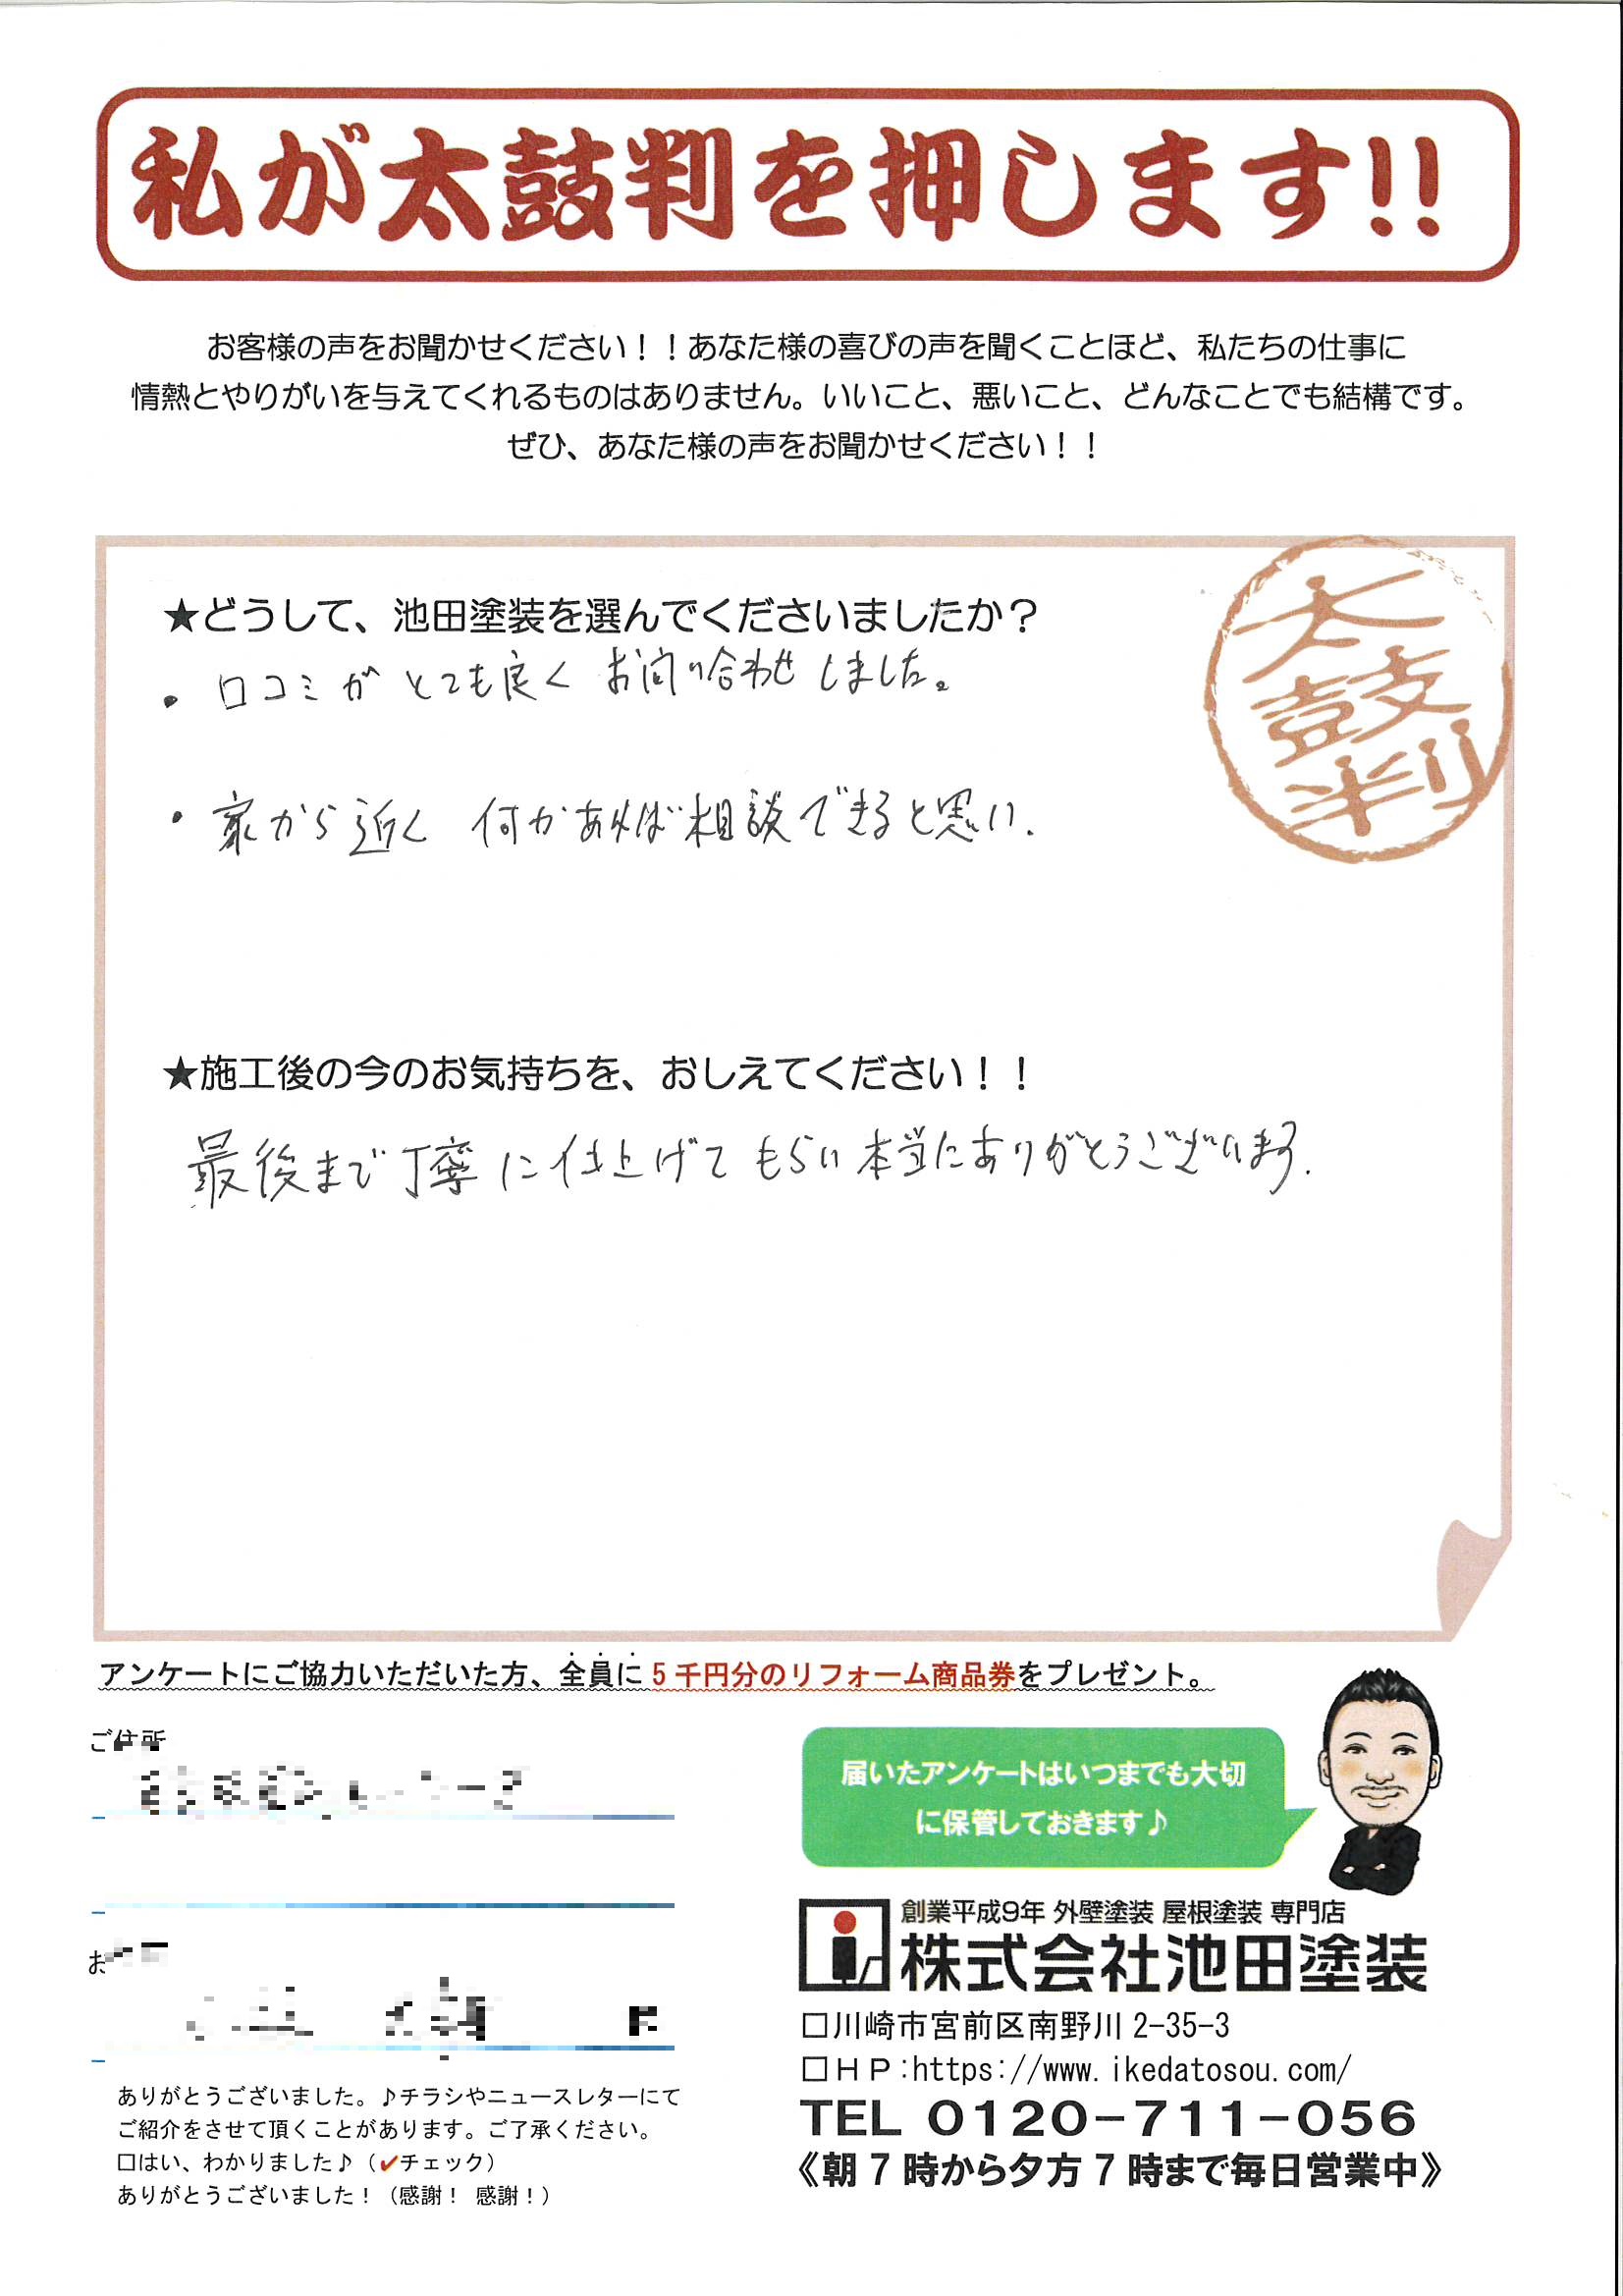 私が太鼓判を押します!!
お客様の声をお聞かせください！！あなた様の喜びの声を聞くことほど、私たちの仕事に
情熱とやりがいを与えてくれるものはありません。いいこと、悪いこと、どんなことでも結構です。
ぜひ、あなた様の声をお聞かせください！！
太鼓判
★どうして、池田塗装を選んでくださいましたか？
・口コミがとても良くお問い合わせしました。
・家から近く 何かあれば相談できると思い.
★施工後の今のお気持ちを、おしえてください！！
最後まで丁寧に仕上げてもらい本当にありがとうございます.
アンケートにご協力いただいた方、全員に5千円分のリフォーム商品券をプレゼント。
ご住所
届いたアンケートはいつまでも大切
に保管しておきます♪
お
創業平成9年 外壁塗装 屋根塗装 専門店
株式会社池田塗装
□川崎市宮前区南野川2-35-3
□ＨＰ:https://www.ikedatosou.com/
TEL 0120-711-056
《朝7時から夕方7時まで毎日営業中》
ありがとうございました。♪チラシやニュースレターにて
ご紹介をさせて頂くことがあります。ご了承ください。
□はい、わかりました♪（✓チェック）
ありがとうございました！（感謝！ 感謝！）